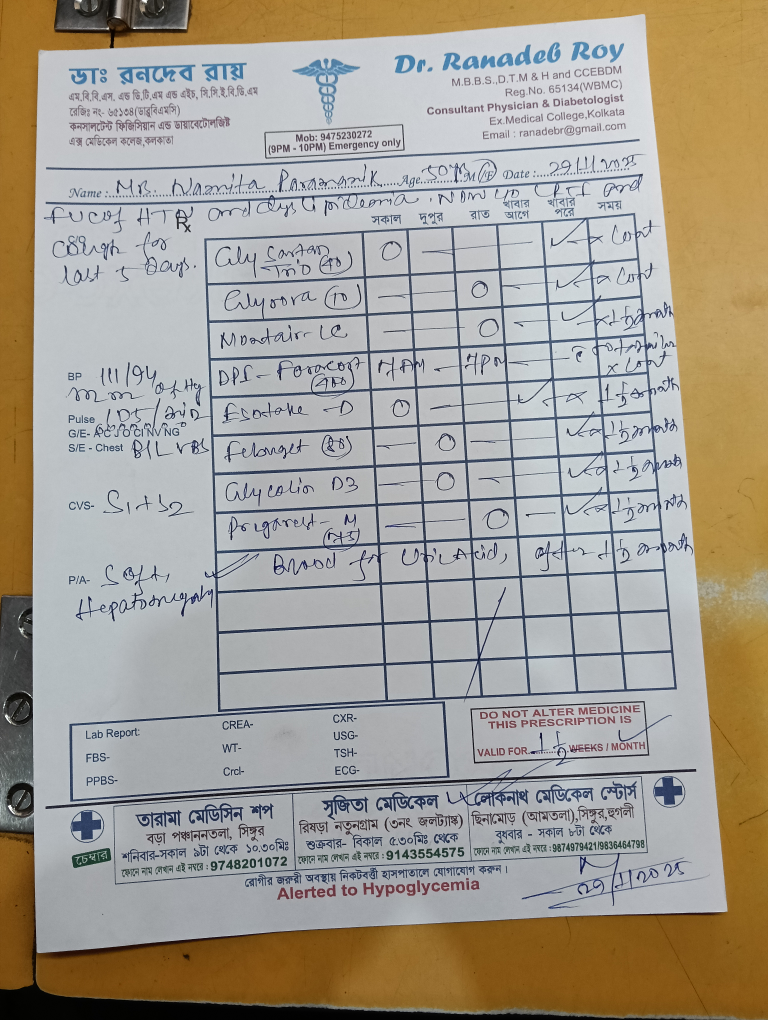 ডাঃ রনদেব রায়
এম.বি.বি.এস. এন্ড ডি.টি.এম এন্ড এইচ, সি.সি.ই.বি.ডি.এম
রেজিঃ নং- ৬৫১৩৪(ডাব্লুবিএমসি)
কনসালটেন্ট ফিজিসিয়ান এন্ড ডায়াবেটোলজিষ্ট
এক্স মেডিকেল কলেজ,কলকাতা
Mob: 9475230272
(9PM - 10PM) Emergency only
Dr. Ranadeb Roy
M.B.B.S.,D.T.M & H and CCEBDM
Reg.No. 65134(WBMC)
Consultant Physician & Diabetologist
Ex.Medical College,Kolkata
Email : ranadebr@gmail.com
Name : Mrs. Namita Paramanik Age 50 yrs M/F Date : 29/1/2025
FUC of HTN and dyslipidemia. Now and
cough for
last 5 days.
Rx
সকাল দুপুর রাত খাবার আগে খাবার পরে সময়
Gly Sartan (40) O — — — ✓ x Cont
(10) — — O — ✓ x Cont
Montair-LC — — O — ✓ x 1½ month
DPI- Foracort (400) 7AM — 7PM — x Cont
-D O — — ✓ x 1½ month
(80) — O — — ✓ x 1½ month
D3 — O — — ✓ x 1½ month
-M (75) — — O — ✓ x 1½ month
✓ Blood for Uric Acid, after 1½ month
BP 111/94
mm of Hg
Pulse 105/min
G/E- A C J O Cl NV NG
S/E - Chest B/L VBS
CVS- S1+S2
P/A- Soft,
Hepatomegaly
Lab Report:
FBS-
PPBS-
CREA-
WT-
Crcl-
CXR-
USG-
TSH-
ECG-
DO NOT ALTER MEDICINE
THIS PRESCRIPTION IS
VALID FOR 1½ WEEKS / MONTH
চেম্বার
তারামা মেডিসিন শপ
বড়া পঞ্চাননতলা, সিঙ্গুর
শনিবার-সকাল ৯টা থেকে ১০.৩০মিঃ
ফোনে নাম লেখান এই নম্বরে : 9748201072
সৃজিতা মেডিকেল
রিষড়া নতুনগ্রাম (৩নং জলট্যাঙ্ক)
শুক্রবার- বিকাল ৫.৩০মিঃ থেকে
ফোনে নাম লেখান এই নম্বরে : 9143554575
লোকনাথ মেডিকেল স্টোর্স
ছিনামোড় (আমতলা),সিঙ্গুর,হুগলী
বুধবার - সকাল ৮টা থেকে
ফোনে নাম লেখান এই নম্বরে : 9874979421/9836464798
রোগীর জরুরী অবস্থায় নিকটবর্তী হাসপাতালে যোগাযোগ করুন।
Alerted to Hypoglycemia
29/1/2025